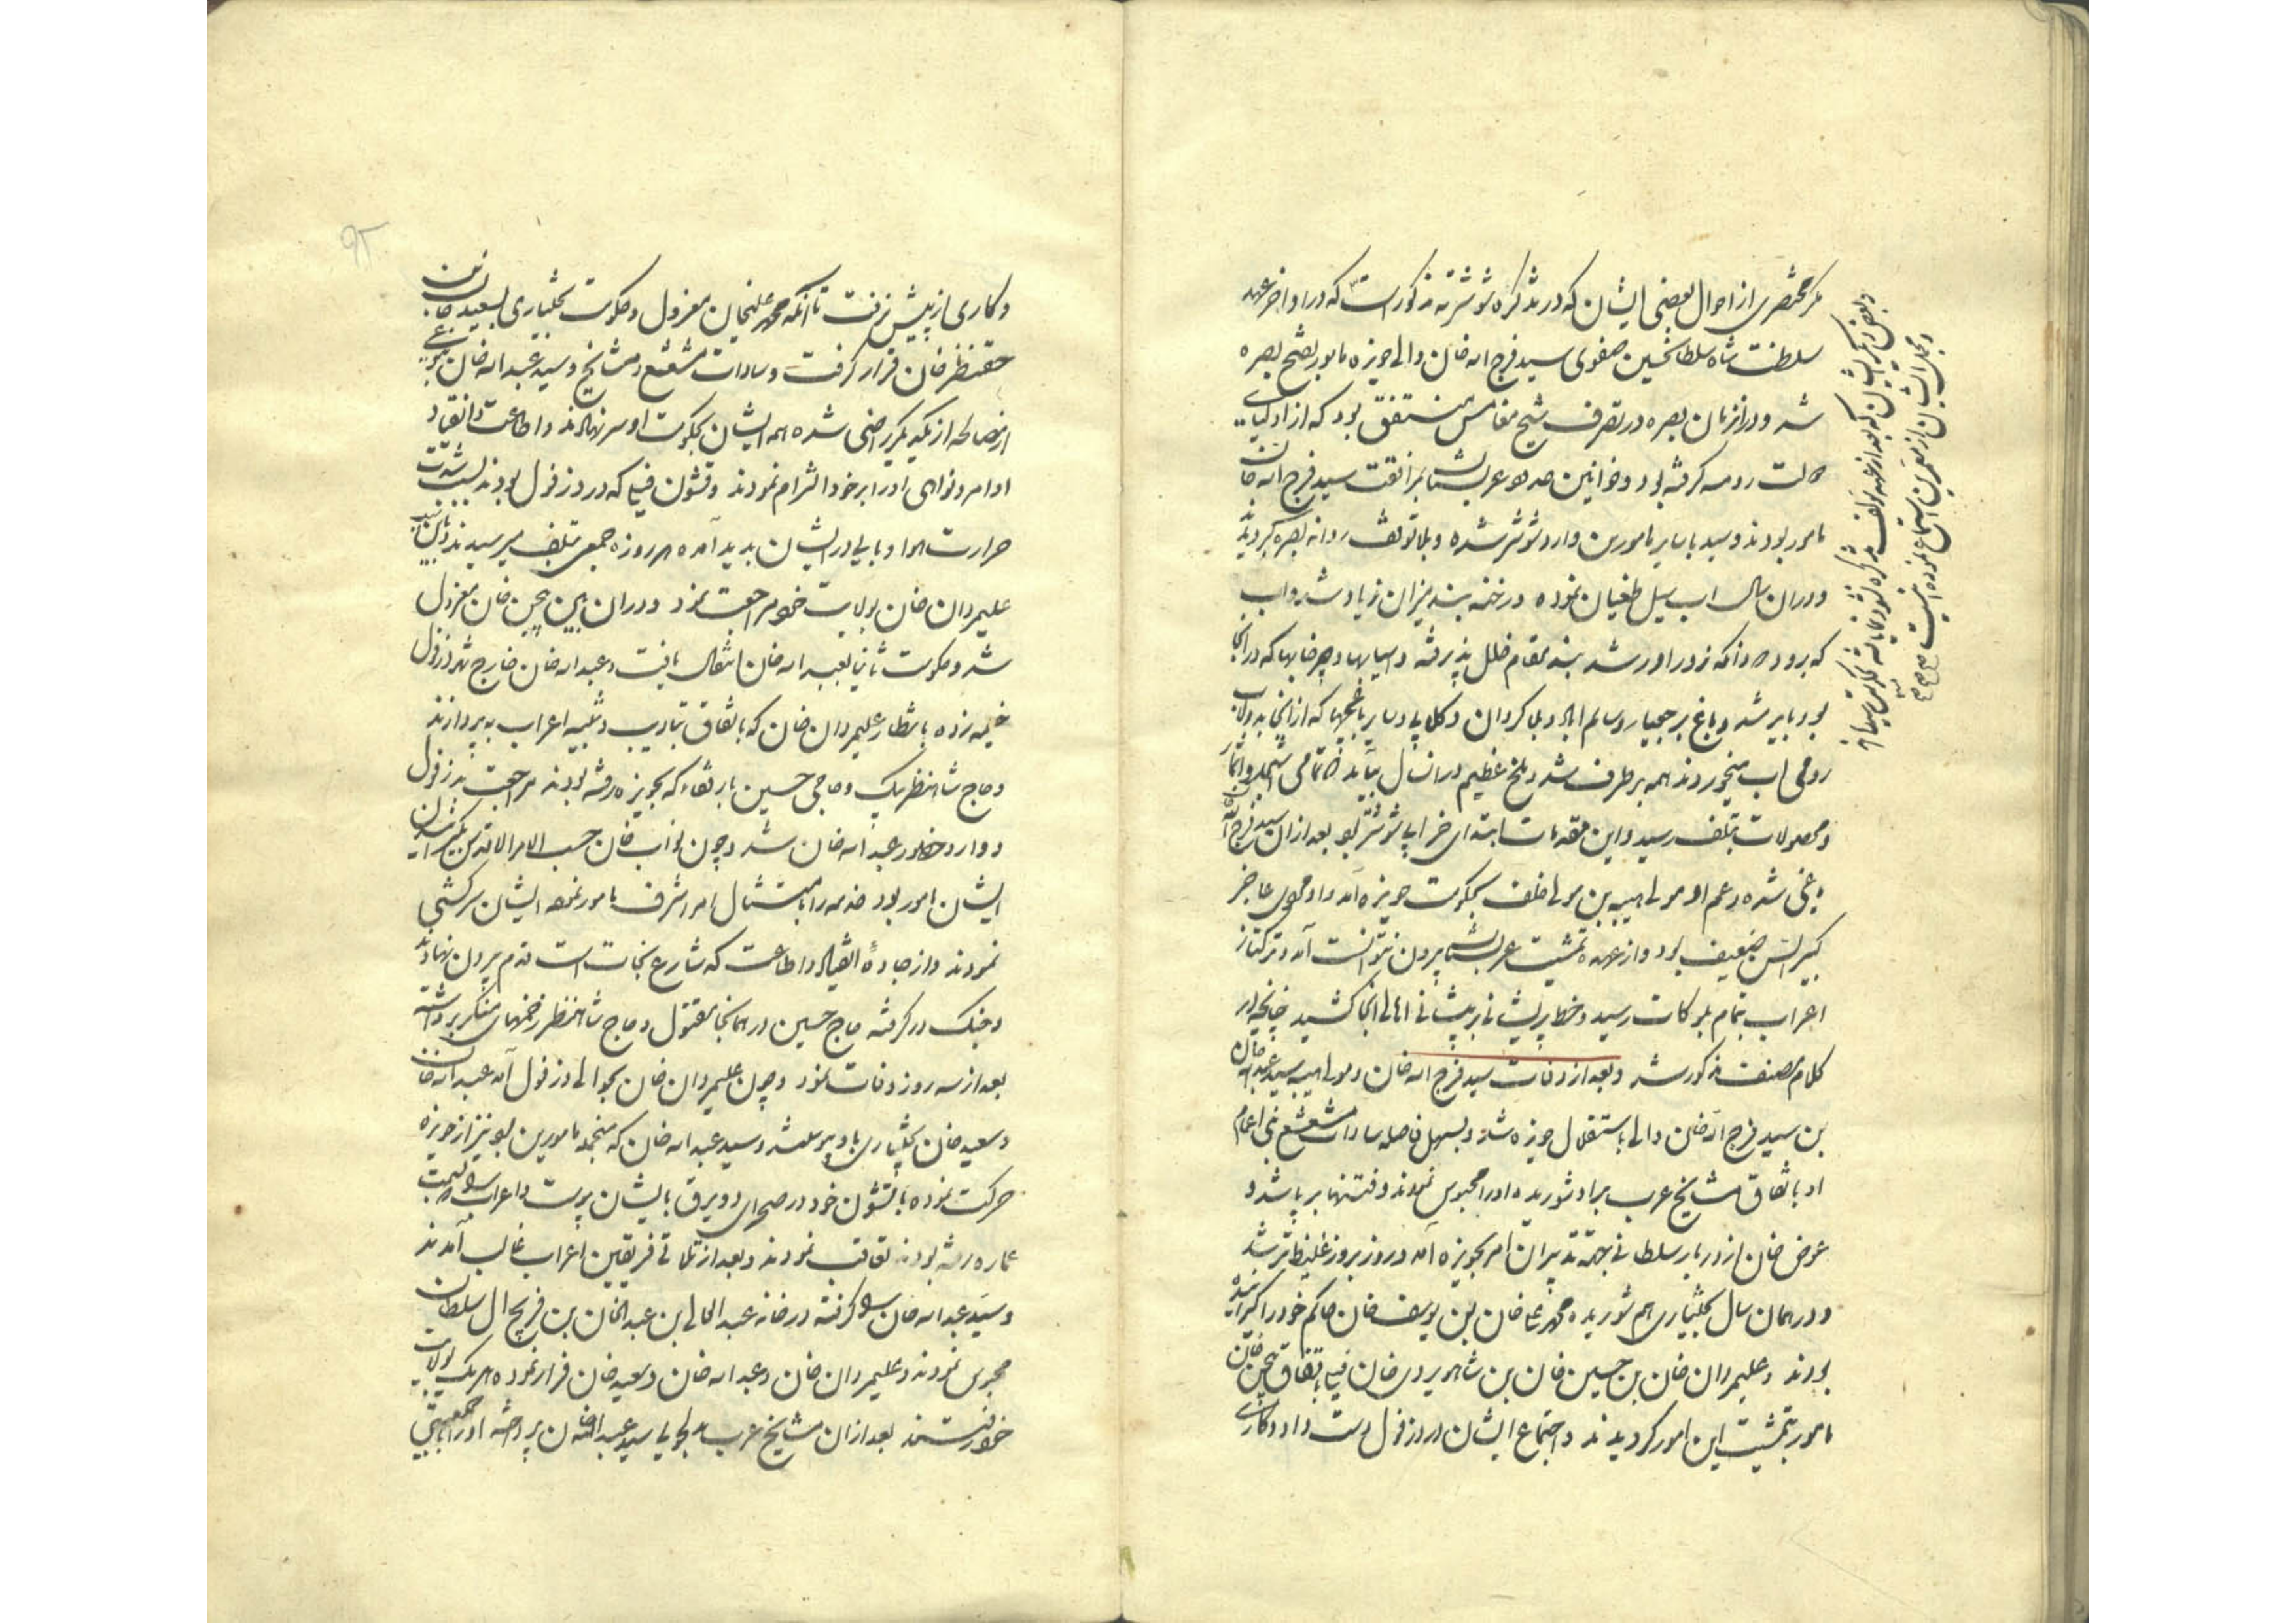 مکر مختصری از احوال بعضی ایشان که در تذکره شوشتریه مذکور است که در اواخر عهد
سلطنت شاه سلطانحسین صفوی سید فرج اله خان والی حویزه مامور بفتح بصره
شد و در انزمان بصره در تصرف شیخ مغامس منتفق بود که از اولیای
دولت رومیه کرفته بود و خوانین حدود عربستان بمرافقت سید فرج اله خان
مامور بودند و سید با سایر مامورین وارد شوشتر شده و بلا توقف روانه بصره کردیدند
و در ان سال اب سیل طغیان نموده و رخنه بند میزان زیاد شد و اب
که برود دودانکه زور اور شد بند مقام خلل پذیرفته و اسیابها و چرخابها که در انجا
بود بایر شد و باغ برجعیار و سالم اباد و بلا کردان و کلابی و سایر باغچها که از انجا بدولاب
رومی اب میخوردند همه بر طرف شد و ملخ عظیم در انسال بیامد تمامی اشجار و اثمار
و محصولات بتلف رسید و این مقدمات ابتدای خرابی شوشتر بود بعد از ان سید فرج اله
یاغی شده و عم او مولی هیبه بن مولی خلف بحکومت حویزه آمد و او مردی عاجز
کبیر السن ضعیف بود و از عهده تمشیت عربستان بیرون نتوانست آمد و ترکتاز
اعراب بتمام بلوکات رسید و خط پریشانی بر پیشانی اهالی انجا کشید چنانچه در
کلام مصنف مذکور شد و بعد از وفات سید فرج اله خان و مولی هیبه سید عبداله خان
بن سید فرج اله خان والی باستقلال حویزه شد و بسهل فاصله سادات مشعشع بنی اعمام
او باتفاق مشایخ عرب بر او شوریده او را محبوس نمودند و فتنها بر پا شد و
عوض خان از دربار سلطانی بجهة تدبیر ان امر بحویزه آمد و روز بروز غلیظتر شد
و در همان سال بختیاری هم شوریده محمد علی خان بن یوسف خان حاکم خود را کیرانیده
بودند و علیمردان خان بن حسین خان بن شاهویردی خان فیلی باتفاق بیجن خان
مامور بتمشیت این امور کردیدند و اجتماع ایشان در دزفول دست داد و کاری
و بعض دیکر ایشان که بعد از عهد مؤلف تذکره
و مجمل ایشان از معمرین استماع نموده اینست
وکاری از پیش نرفت تا آنکه محمد علیخان معزول و حکومت بختیاری بسعید خان بن
حقنظر خان قرار کرفت و سادات مشعشع و مشایخ و سید عبداله خان نیز
از مصالحه از یکدیکر راضی شده همه ایشان بحکومت او سر نهادند و اطاعت و انقیاد
اوامر و نواهی او را بر خود التزام نمودند و قشون فیلی که در دزفول بودند بسبب شدت
حرارت هوا وبایی در ایشان بدید آمده هر روزه جمعی بتلف میرسیدند
علیمردان خان بولایت خود مراجعت نمود و در ان بین بیجن خان معزول
شد و حکومت ثانیا بعبد اله خان انتقال یافت و عبداله خان خارج شهر دزفول
خیمه زده بانتظار علیمردان خان که باتفاق بتادیب و تنبیه اعراب به پردازند
و حاج شاهنظر بیک و حاجی حسین با رفقاء که بحویزه رفته بودند مراجعت بدزفول
و وارد حضور عبداله خان شد و چون نواب خان حسب الامر الاقدس
ایشان مامور بود خدمه را بامتثال امر اشرف مامور نمود ایشان سرکشی
نمودند و از جادهٔ انقیاد و اطاعت که شارع نجات است قدم بیرون نهادند
و جنک در کرفته حاج حسین در همانجا مقتول و حاج شاهنظر زخمهای منکر برداشته
بعد از سه روز وفات نمود و چون علیمردان خان بحوالی دزفول آمد عبداله خان
و سعید خان بختیاری باو پیوستند و سید عبداله خان که منجمله مامورین بود نیز از حویزه
حرکت نموده با قشون خود در صحرای دویرق بایشان پیوست و اعراب که بسمت
عماره رفته بودند تعاقب نمودند و بعد از تلاقی فریقین اعراب غالب آمدند
و سید عبداله خان را کرفته در خانه عبد العالی بن عبد الخان بن فریج ال سلطان
محبوس نمودند و علیمردان خان و عبداله خان و سعید خان فرار نموده هر یک بولایت
خود رفتند بعد از ان مشایخ عرب بدلجویی سید عبداله خان پرداخته او را